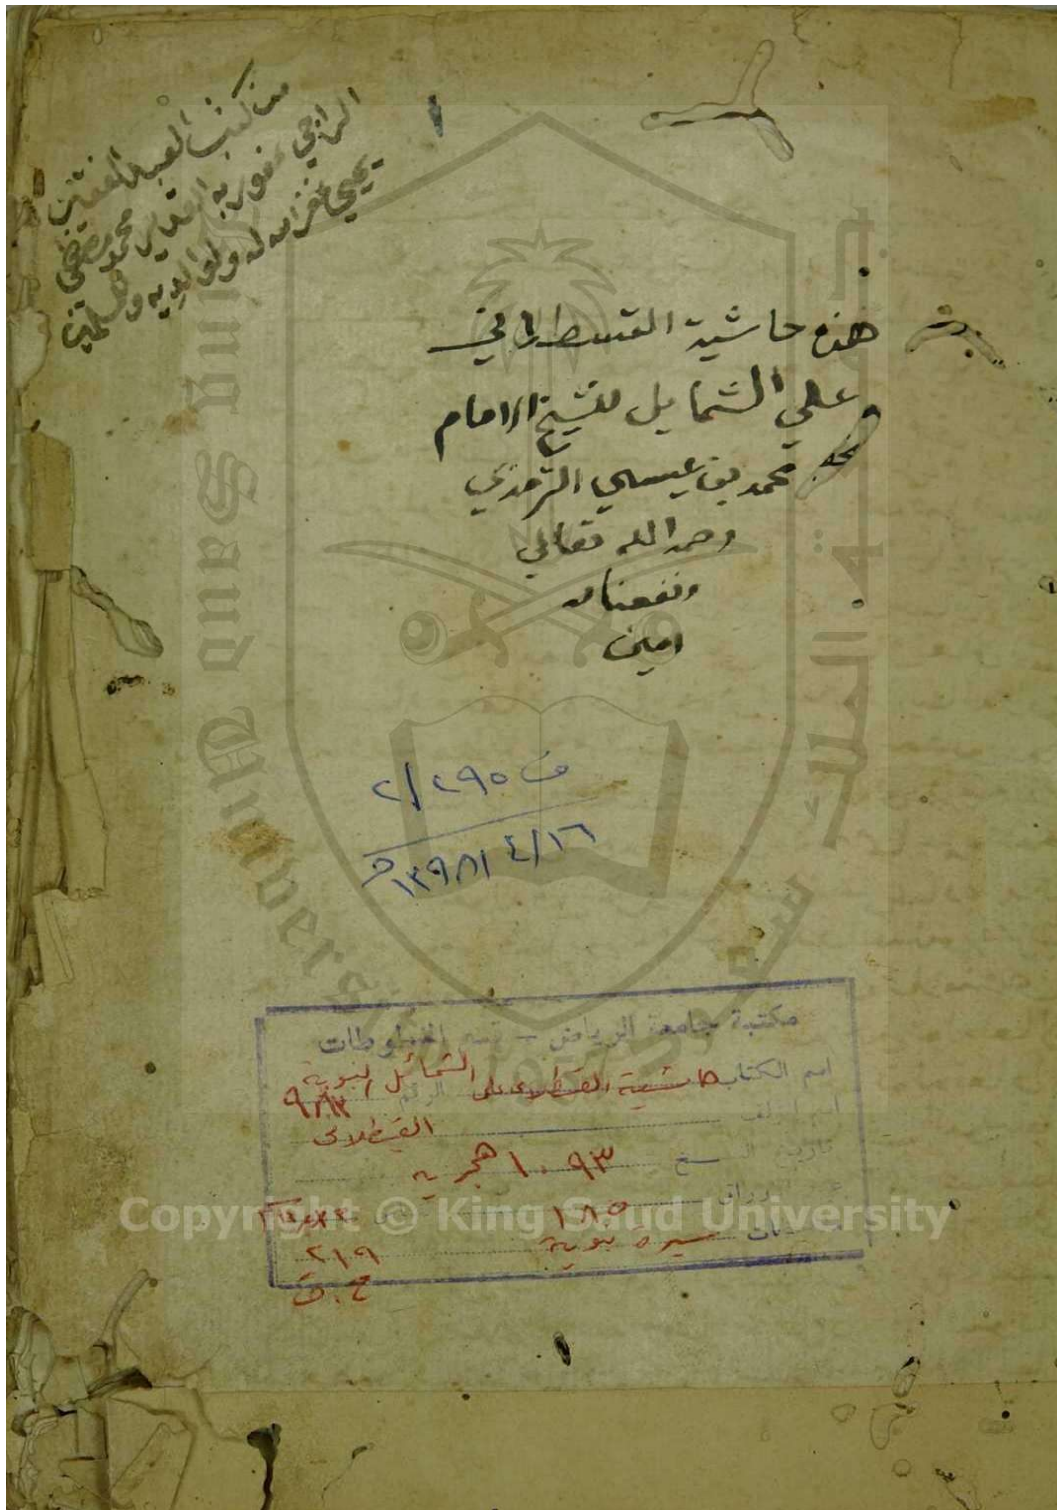 من كتب العبد الفقير
الراجي عفو ربه القدير محمد مصطفى
يحيى غفر الله له ولوالديه وللمسلمين
هذه حاشية القسطلاني
علي الشمايل للشيخ الامام
محمد بن عيسي الترمذي
رحمه الله تعالي
ونفعنا به
امين
ف ٢٩٥/٢
١٦/٤/١٣٩٨هـ
مكتبة جامعة الرياض - قسم المخطوطات
اسم الكتاب حاشية القسطلانى على الشمائل النبوية الرقم ٩٨٣
اسم المؤلف القسطلانى
تاريخ النسخ ١٠٩٣ هجرية
اوراق ١٨٥
سيرة نبوية
٢١٩
ح.ق
Copyright © King Saud University
King Saud University